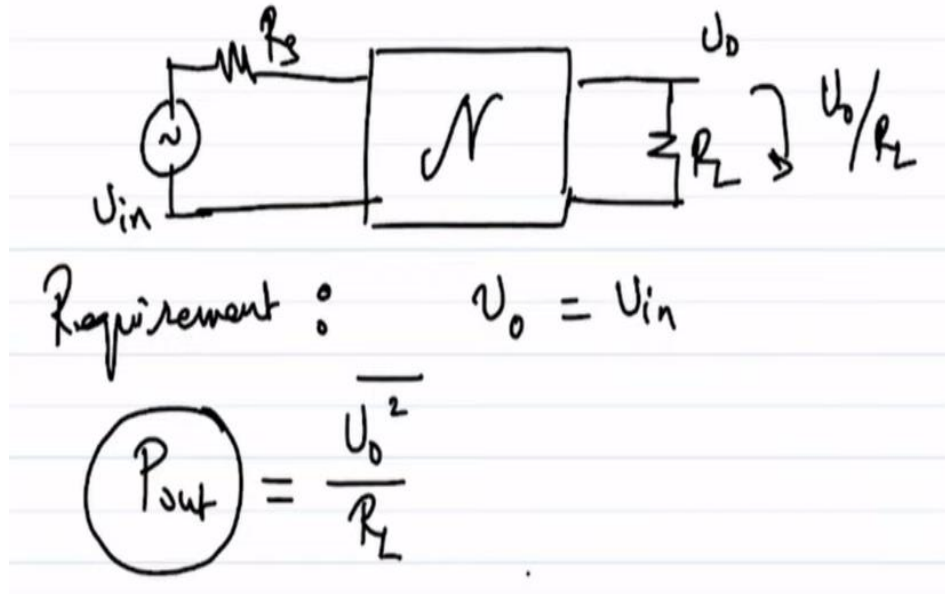 Rs
N
vo
vo/RL
RL
vin
Requirement : vo = vin
Pout = vo²
RL